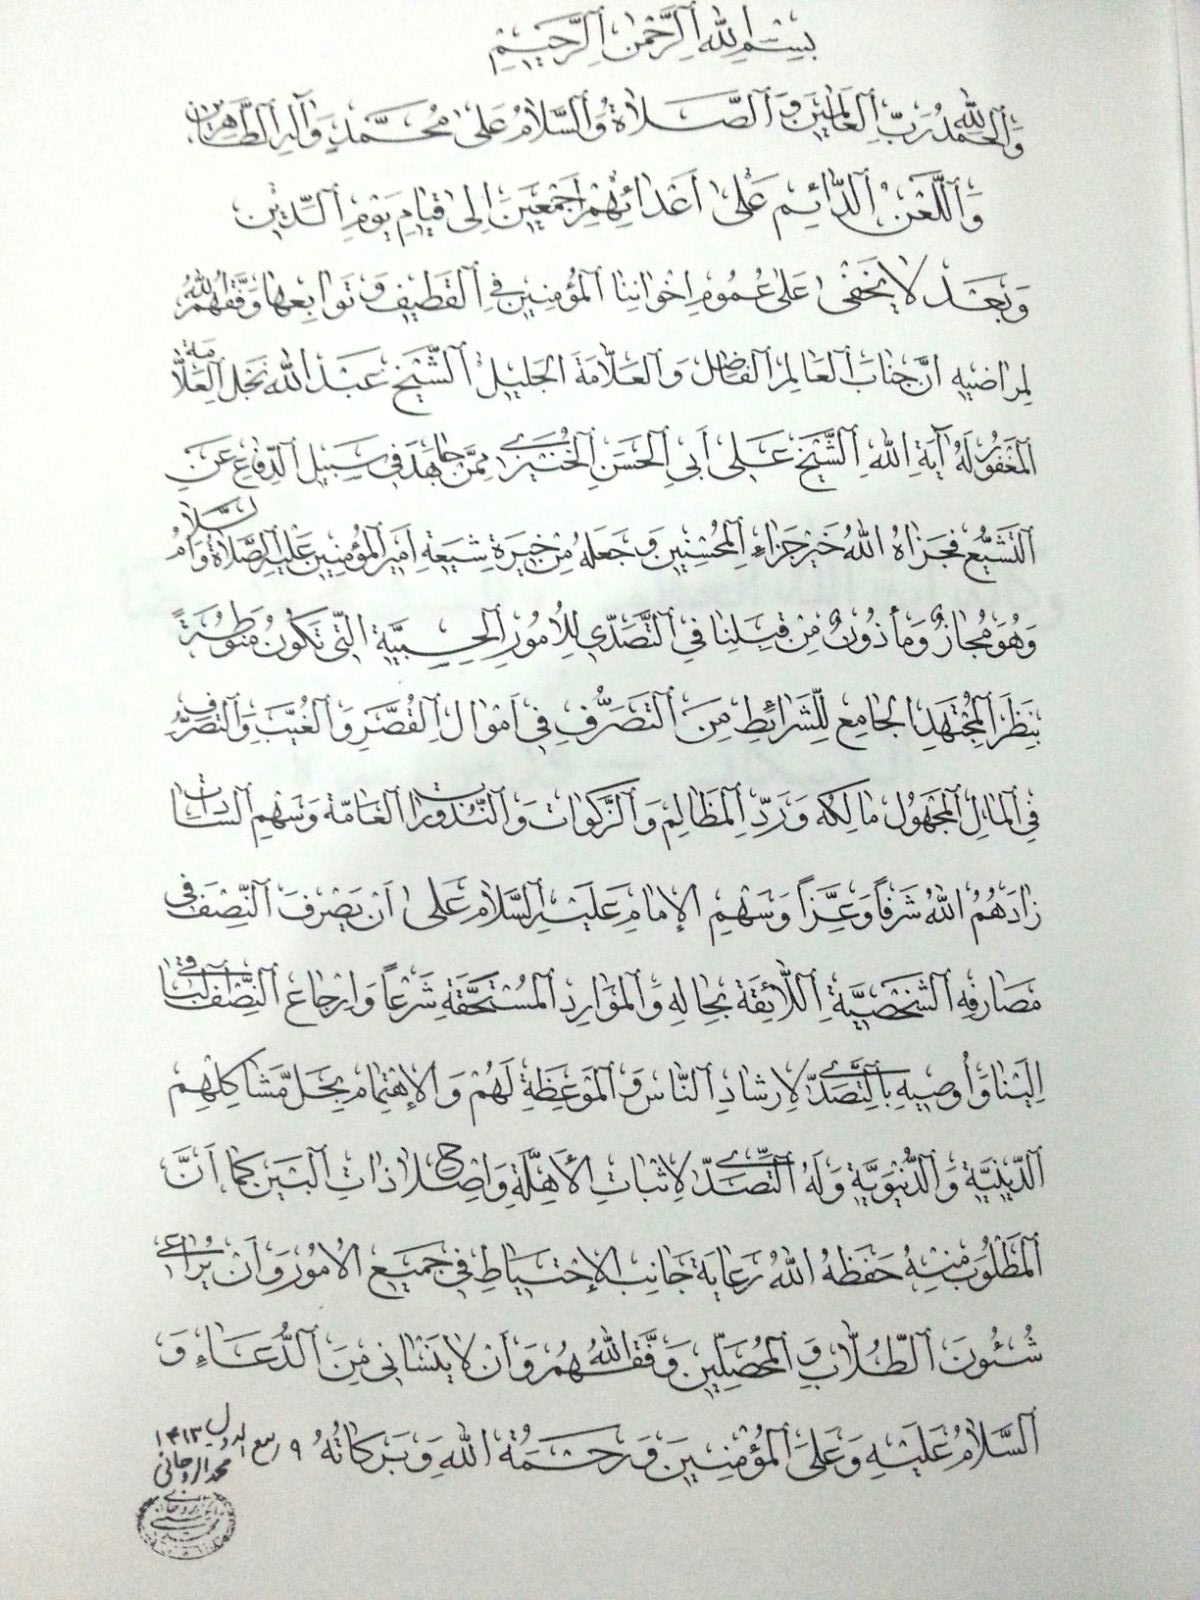 بِسْمِ اللهِ الرَّحْمنِ الرَّحيمِ
وَالحَمدُ للهِ رَبِّ العالَمينَ وَالصَّلاةُ وَالسَّلامُ عَلى مُحَمَّدٍ وَآلِهِ الطّاهِرينَ
وَاللَّعْنُ الدّائِمِ عَلى أعْدائِهِمْ اَجْمَعينَ اِلى قِيامِ يَوْمِ الدّينِ
وَبَعْدُ لا يَخْفى عَلى عُمُومِ اِخْوانِنا المُؤمِنينَ فِي القَطيفِ وَتَوابِعِها وَفَّقَهُمُ اللهُ
لِمَراضيهِ اِنَّ جِنابَ العالِمِ الفاضِلِ وَالعَلّامَةِ الجَليلِ الشَّيْخِ عَبْدَ اللهِ نَجْلِ العَلّامَةِ
المَغْفُورِ لَهُ آيَةِ اللهِ الشَّيْخِ عَلى اَبي الحَسَنِ الخُنَيْزي مِمَّنْ جاهَدَ في سَبيلِ الدِّفاعِ عَنِ
التَّشَيُّعِ فَجَزاهُ اللهُ خَيْرَ جَزاءِ المُحْسِنينَ وَجَعَلَهُ مِنْ خِيَرَةِ شيعَةِ اَميرِ المُؤْمِنينَ عَلَيْهِ الصَّلاةُ وَالسَّلامُ
وَهُوَ مُجازٌ وَمَأذُونٌ مِنْ قِبَلِنا فِي التَّصَدّي لِلأُمُورِ الحِسْبِيَّةِ الَّتي تَكُونُ مَنُوطَةً
بِنَظَرِ المُجْتَهِدِ الجامِعِ لِلشَّرائِطِ مِنَ التَّصَرُّفِ في اَمْوالِ القُصَّرِ وَالغُيَّبِ وَالتَّصَرُّفِ
فِي المالِ المَجْهُولِ مالِكُهُ وَرَدِّ المَظالِمِ وَالزَّكَواتِ وَالنُّذُوراتِ العامَّةِ وَسَهْمِ السّاداتِ
زادَهُمُ اللهُ شَرَفاً وَعِزّاً وَسَهْمِ الإمامِ عَلَيْهِ السَّلامُ عَلى اَنْ يَصْرِفَ النِّصْفَ في
مَصارِفِهِ الشَّخْصِيَّةِ اللّائِقَةِ بِحالِهِ وَالمَوارِدِ المُسْتَحَقَّةِ شَرْعاً وَاِرْجاعِ النِّصْفِ الباقي
اِلَيْنا وَاُوصيهِ بِالتَّصَدّي لِاِرْشادِ النّاسِ وَالمَوْعِظَةِ لَهُمْ وَالاِهْتِمامِ بِحَلِّ مَشاكِلِهِمِ
الدّينِيَّةِ وَالدُّنْيَوِيَّةِ وَلَهُ التَّصَدّي لِاِثْباتِ الأَهِلَّةِ وَاِصْلاحِ ذاتِ البَيْنِ كَما اَنَّ
المَطْلُوبَ مِنْهُ حَفِظَهُ اللهُ رَعايَةَ جانِبِ الاِحْتِياطِ في جَميعِ الاُمُورِ وَاَنْ يُراعي
شُئُونَ الطُّلّابِ وَالمُحَصِّلينَ وَفَّقَهُمُ اللهُ وَأَنْ لا يَنْساني مِنَ الدُّعاءِ وَ
السَّلامُ عَلَيْهِ وَعَلَى المُؤْمِنينَ وَرَحْمَةُ اللهِ وَبَرَكاتُهُ ٩ ربيع الاول ١٤١٣
محمد الروحاني